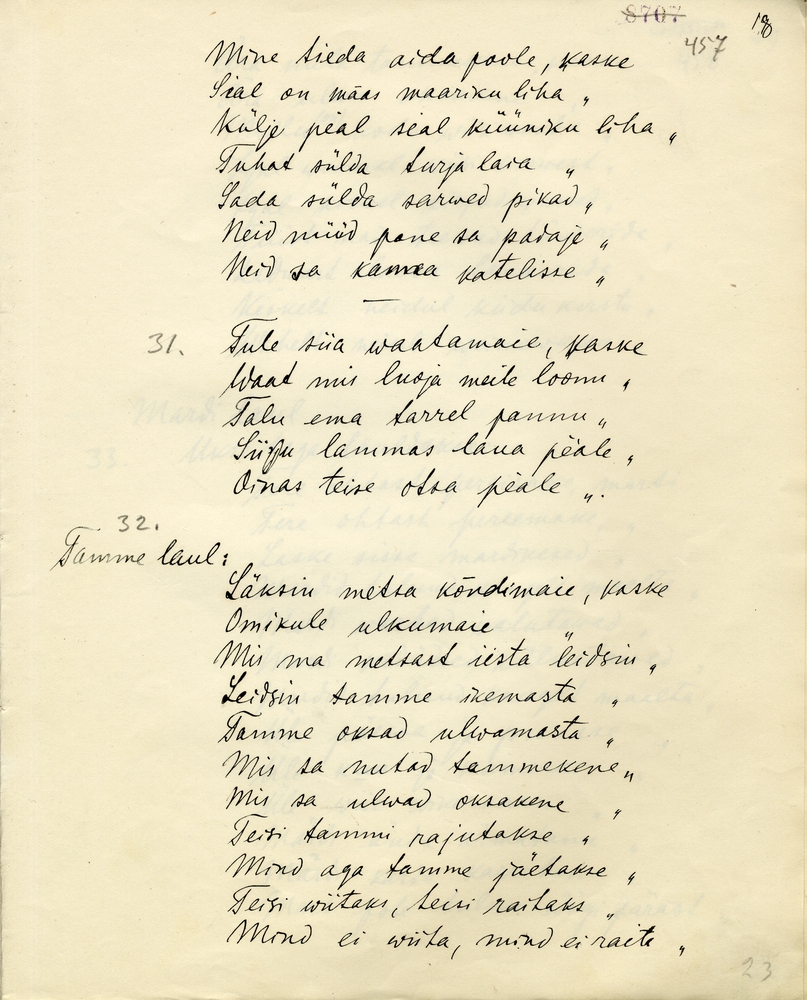 8707
18
457
Mine tieda aida poole, kaske
Sial on mäas maariku liha "
Külje peal seal küüniku liha "
Tuhat sülda turja laia "
Sada sülda sarwed pikad "
Neid nüüd pane sa padaje "
Neid sa kanna katelisse "
31. Tule siia waatamaie, kaske
Waat mis luoja meile loonu "
Talu ema tarrel pannu "
lammas laua pëale "
Oinas teise otsa pëale ".
32.
Tamme laul:
Läksin metsa kõndimaie, kaske
Omikule ulkumaie "
Mis ma metsast iesta leidsin "
Leidsin tamme ikemasta "
Tamme oksad ulwamasta "
Mis sa nutad tammekene "
Mis sa ulwad oksakene "
Teisi tammi rajutakse "
Mind aga tamme jäetakse "
Teisi wiitaks, teisi raitaks "
Mind ei wiita, mind ei raita "
23